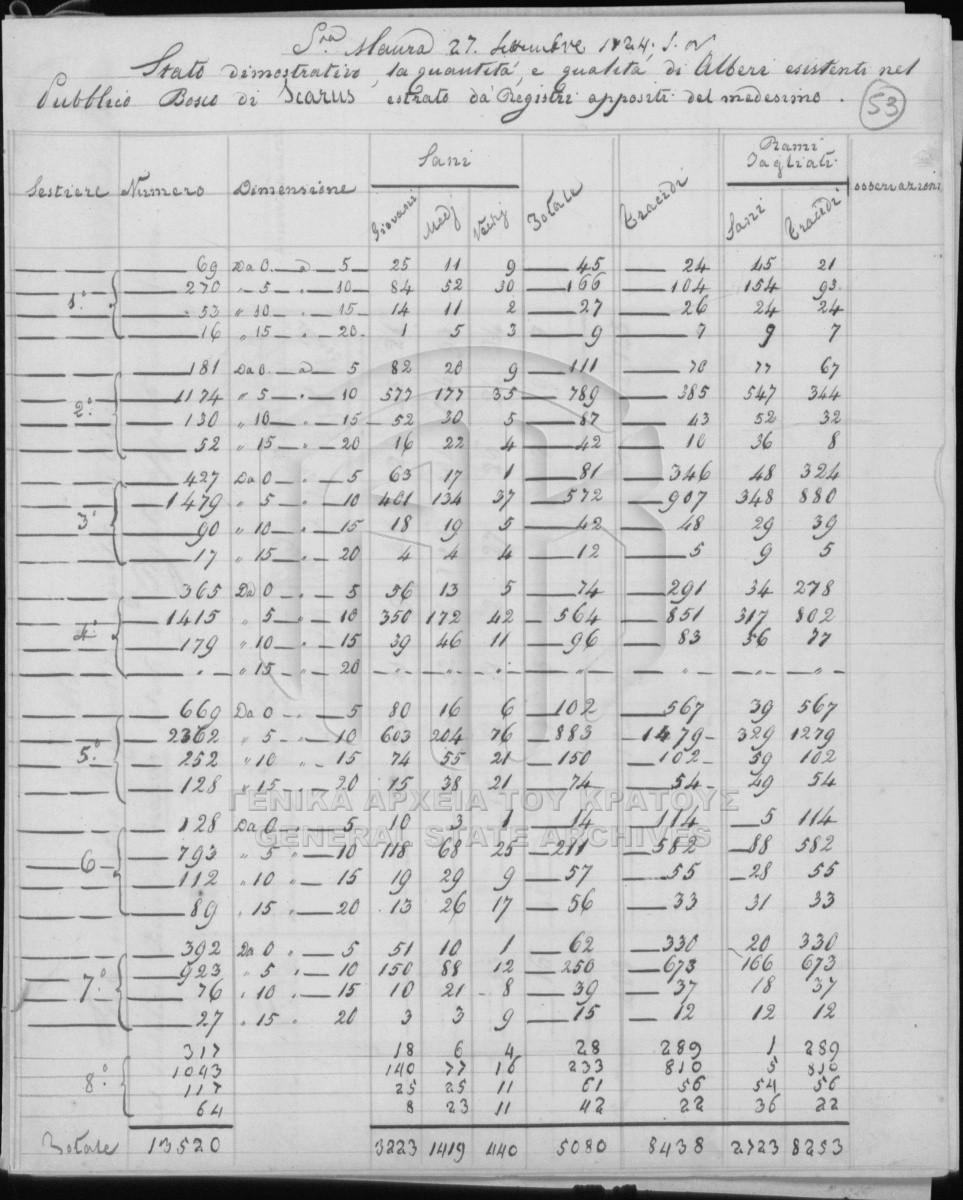 Sra Maura 27. Settembre 1824. S. V.
Stato dimostrativo, la quantità, e qualità di Alberi esistenti nel
Pubblico Bosco di Scarus, estrato da Registri appositi del medesimo.
53
Sestiere Numero Dimensione Sani Totale Tracidi Rami Tagliati osservazioni
Giovani Medj Vechj Sani Tracidi
1° 69 Da 0 a 5 25 11 9 45 24 45 21
270 " 5 " 10 84 52 30 166 104 154 93
53 " 10 " 15 14 11 2 27 26 24 24
16 " 15 " 20 1 5 3 9 7 9 7
2° 181 Da 0 a 5 82 20 9 111 70 77 67
1174 " 5 " 10 577 177 35 789 385 547 344
130 " 10 " 15 52 30 5 87 43 52 32
52 " 15 " 20 16 22 4 42 10 36 8
3° 427 Da 0 " 5 63 17 1 81 346 48 324
1479 " 5 " 10 401 134 37 572 907 348 880
90 " 10 " 15 18 19 5 42 48 29 39
17 " 15 " 20 4 4 4 12 5 9 5
4° 365 Da 0 " 5 56 13 5 74 291 34 278
1415 " 5 " 10 350 172 42 564 851 317 802
179 " 10 " 15 39 46 11 96 83 56 77
" " 15 " 20 " " " " " " "
5° 669 Da 0 " 5 80 16 6 102 567 39 567
2362 " 5 " 10 603 204 76 883 1479 329 1279
252 " 10 " 15 74 55 21 150 102 59 102
128 " 15 " 20 15 38 21 74 54 49 54
6 128 Da 0 " 5 10 3 1 14 114 5 114
793 " 5 " 10 118 68 25 211 582 88 582
112 " 10 " 15 19 29 9 57 55 28 55
89 " 15 " 20 13 26 17 56 33 31 33
7° 392 Da 0 " 5 51 10 1 62 330 20 330
923 " 5 " 10 150 88 12 250 673 166 673
76 " 10 " 15 10 21 8 39 37 18 37
27 " 15 " 20 3 3 9 15 12 12 12
8° 317 18 6 4 28 289 1 289
1043 140 77 16 233 810 5 810
117 25 25 11 61 56 54 56
64 8 23 11 42 22 36 22
Totale 13520 3223 1419 440 5080 8438 2723 8253
ΓΕΝΙΚΑ ΑΡΧΕΙΑ ΤΟΥ ΚΡΑΤΟΥΣ
GENERAL STATE ARCHIVES